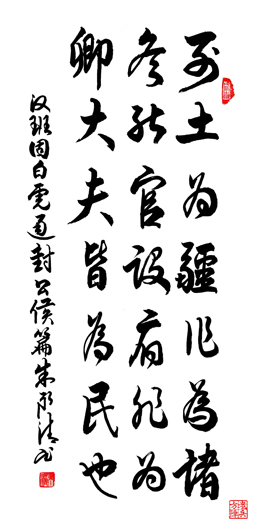 列土为疆非為諸
侯张官設府非为
卿大夫皆為民也
汉班固白虎通封公侯篇朱清书